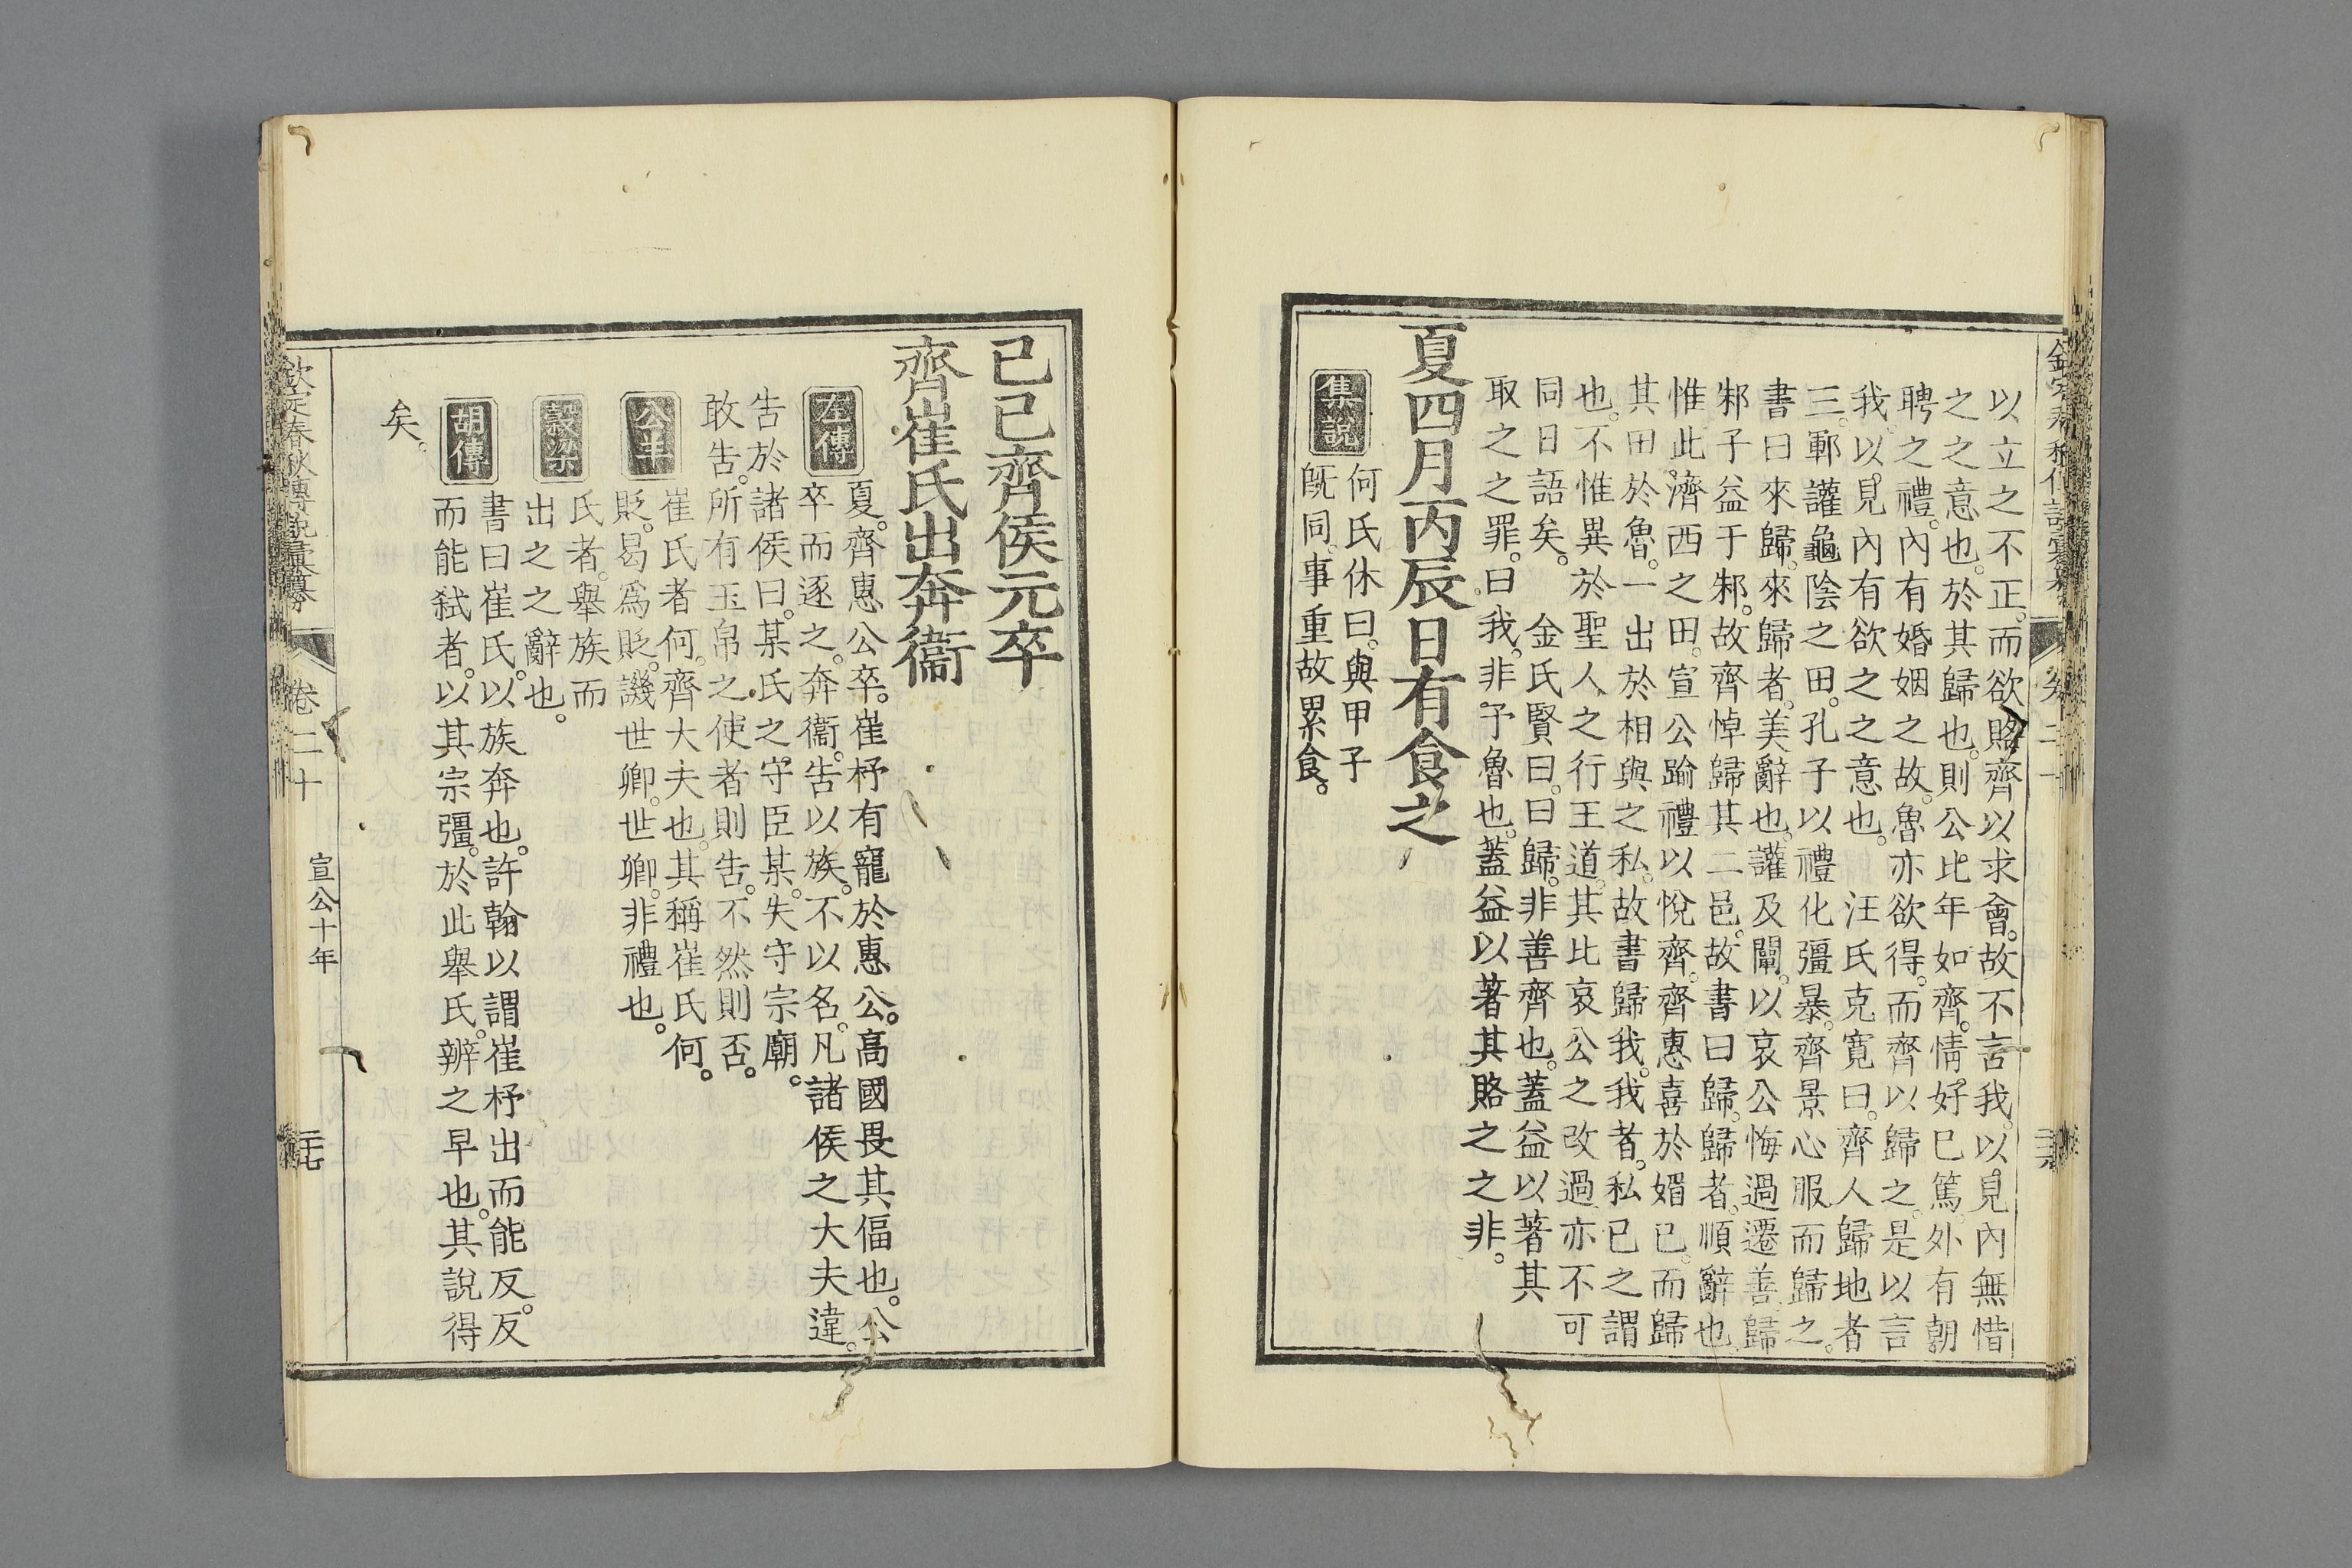 以立之不正。而欲賂齊以求會。故不言我。以見內無惜
之之意也。於其歸也。則公比年如齊。情好已篤。外有朝
聘之禮。內有婚姻之故。魯亦欲得。而齊以歸之。是以言
我。以見內有欲之之意也。 汪氏克寬曰。齊人歸地者
三。鄆讙龜陰之田。孔子以禮化彊暴。齊景心服而歸之。
書曰來歸。來歸者。美辭也。讙及闡。以哀公悔過遷善。歸
邾子益于邾。故齊悼歸其二邑。故書曰歸。歸者。順辭也
惟此濟西之田。宣公踰禮以悅齊。齊惠喜於媚已。而歸
其田於魯。一出於相與之私。故書歸我。我者。私已之謂
也。不惟異於聖人之行王道。其比哀公之改過。亦不可
同日語矣。 金氏賢曰。曰歸。非善齊也。蓋益以著其
取之之罪。曰我。非予魯也。蓋益以著其賂之之非。
夏四月丙辰日有食之
集說
何氏休曰。與甲子
旣同。事重故累食。
己巳齊侯元卒
齊崔氏出奔衞
左傳
夏。齊惠公卒。崔杼有寵於惠公。高國畏其偪也。公
卒而逐之。奔衞。告以族。不以名。凡諸侯之大夫違。
告於諸侯曰。某氏之守臣某。失守宗廟。
敢告。所有玉帛之使者則告。不然則否。
公羊
崔氏者何。齊大夫也。其稱崔氏何。
貶。曷爲貶。譏世卿。世卿。非禮也。
穀梁
氏者。舉族而
出之之辭也。
胡傳
書曰崔氏。以族奔也。許翰以謂崔杼出而能反。反
而能弒者。以其宗彊。於此舉氏。辨之早也。其說得
矣。
欽定春秋傳說彙纂 卷二十 宣公十年 二十七